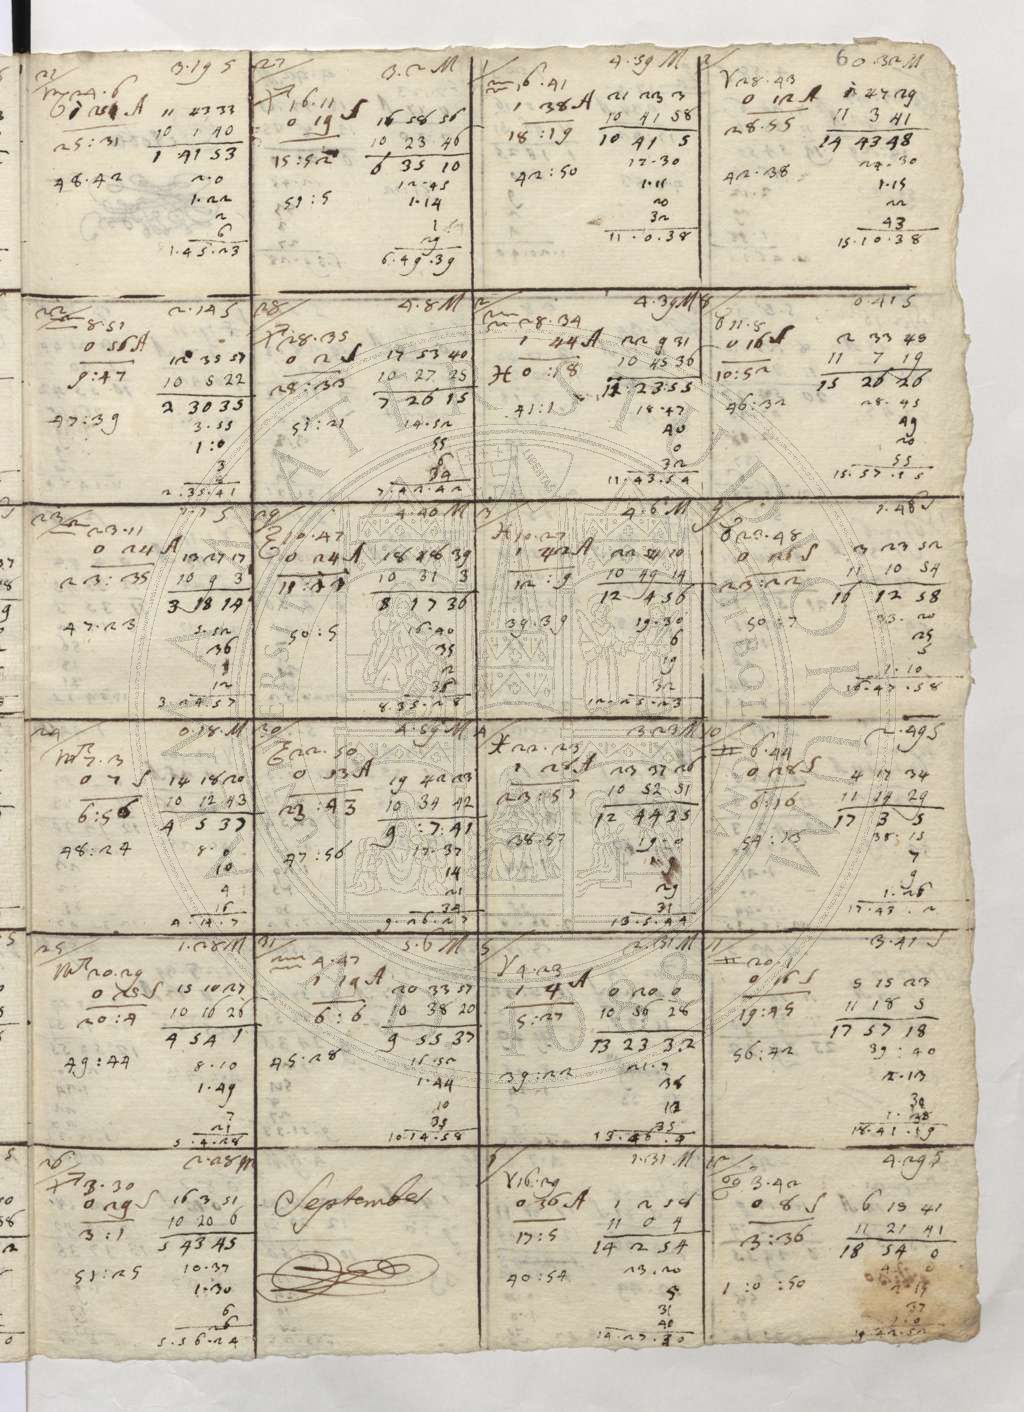 27/ 3.2 M
16.11
0 19 S 16 58 56
10 23 46
15:52 6 35 10
12.45
51:5 1.14
1
29
6.49.39
1/ 4.39 M
6.41
1 38 A 21 23 3
10 41 58
18:19 10 41 5
17.30
42:50 1.11
20
32
11.0.38
♈ 28.43
0 12 A 1 47 29
11 3 41
28.55 14 43 48
24.30
42.38 1.15
22
43
15.10.38
22/ 2.14 S
8.51
0 56 A 12 35 57
10 5 22
9:47 2 30 35
47:39 3.55
1:0
3
2.35.41
28/ 4.8 M
28.35
0 2 S 17 53 40
10 27 25
28:33 7 26 15
51:21 14.52
55
6
34
7.42.42
2/ 4.39 M
28.34
1 44 A 22 9 31
10 45 36
♓ 0:18 11.23.55
41:1 18.47
40
0
32
11.43.54
8 0.41 S
♉ 11.8
0 16 S 2 33 45
11 7 19
10:52 15 26 26
46:32 28.45
49
20
55
15.57.15
23
23.11
0 24 A 13 27 17
10 9 3
23:35 3 18 14
47.23 5.52
36
12
3.24.57
29 4.40 M
10.47
0 24 A
10 31 3
8 17 36
50:5 16.40
35
2
35
8.35.28
3 4.6 M
♓ 10.27
1 42 A
10 49 14
12:9 12 4 56
39.39 19.30
6
19
32
12.25.23
9 1.48 S
♉ 23.48
0 26 S 3 23 52
11 10 54
23:22 16 12 58
50:7 33.20
25
5
1.10
16.47.58
24/ 0.18 M
♏ 7.3
0 7 S 14 18 20
10 12 43
6:56 4 5 37
48:24 8.0
10
4
16
4.14.7
30/ 4.59 M
22.50
0 53 A 19 42 23
10 34 42
23:43 9:7:41
47:56 17.37
14
21
34
9.26.27
4 3.23 M
♓ 22.23
1 28 A 23 37 26
10 52 51
23:51 12 44 35
38.57 19.0
29
31
13.5.44
10 2.49 S
♊ 6.44
0 28 S 4 17 34
11 14 29
6:16 17 3 5
54:13 38.15
7
9
1.26
17.43.2
25/ 1.28 M
♏ 20.29
0 25 S 15 10 27
10 16 26
20:4 4 54 1
49:44 8.10
1.49
7
21
5.4.28
31/ 5.6 M
4.47
1 19 A 20 33 57
10 38 20
6:6 9 55 37
45:28 16.52
1.44
10
35
10.14.58
5 2.31 M
♈ 4.23
1 4 A 0 20 0
10 56 28
5:27 13 23 32
39:22 21.7
36
13
35
13.46.4
11 3.41 S
♊ 20.1
0 16 S 5 15 23
11 18 5
19:45 17 57 18
56:42 39:40
1.13
34
18.41.19
26/ 2.28 M
3.30
0 29 S 16 3 51
10 20 6
3:1 5 43 45
51:25 10.37
1.30
6
26
5.56.24
September
1.31 M
♈ 16.29
0 36 A 1 2 58
11 0 4
17:5 14 2 54
40:54 23.20
5
31
40
14.27.30
12/ 4.29 S
♋ 3.42
0 8 S 6 15 41
11 21 41
3:36 18 54 0
1:0:50